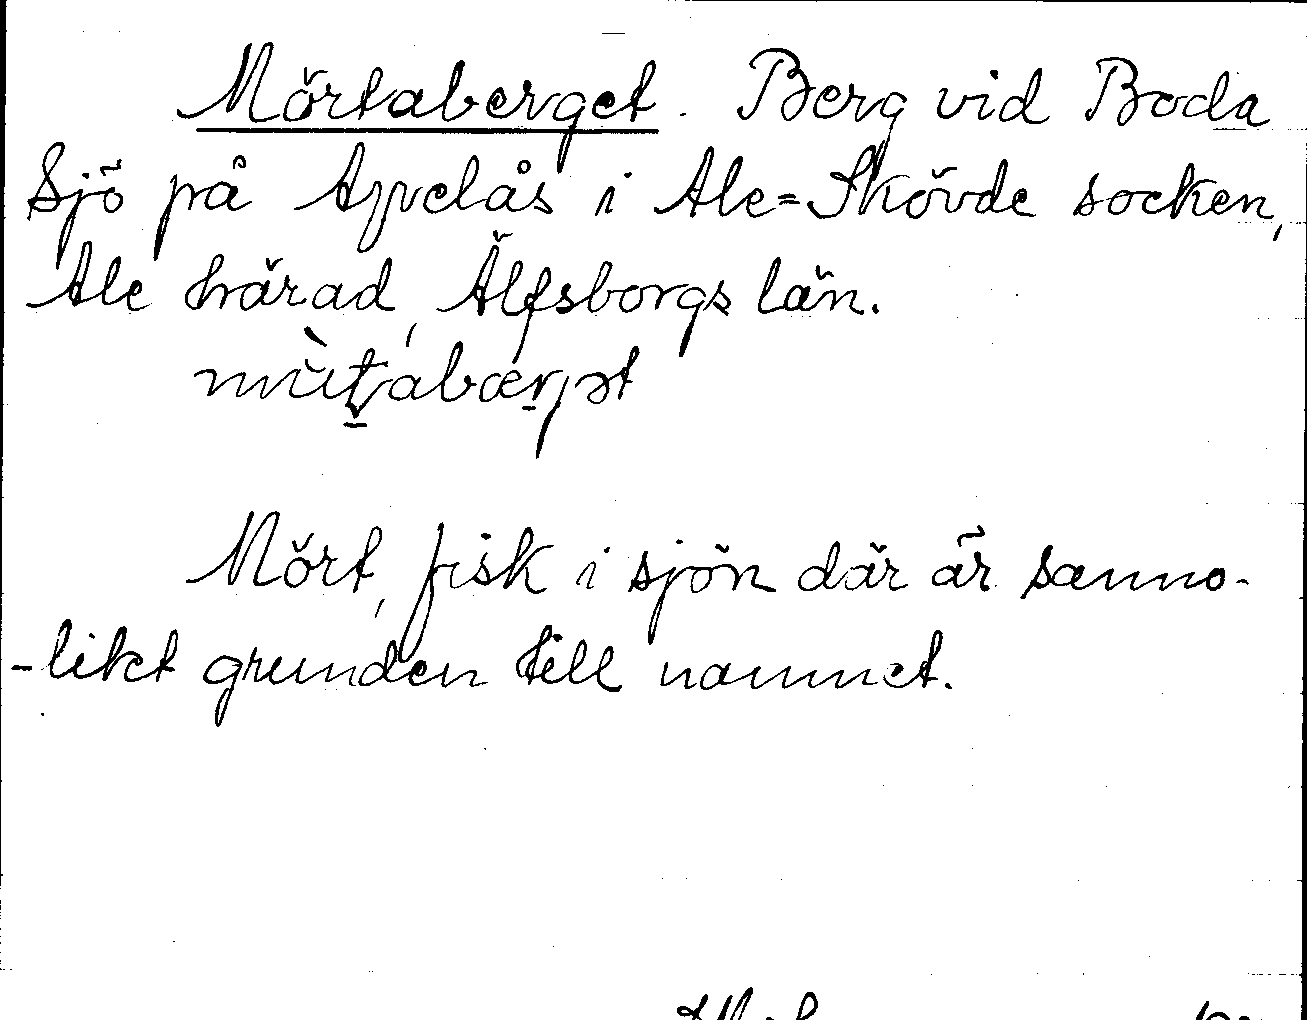 Mörtaberget. Berg vid Boda
Sjö på Appelås i Ale=Skövde socken,
Ale härad, Älfsborgs län.
Mört, fisk i sjön där är sanno-
-likt grunden till namnet.